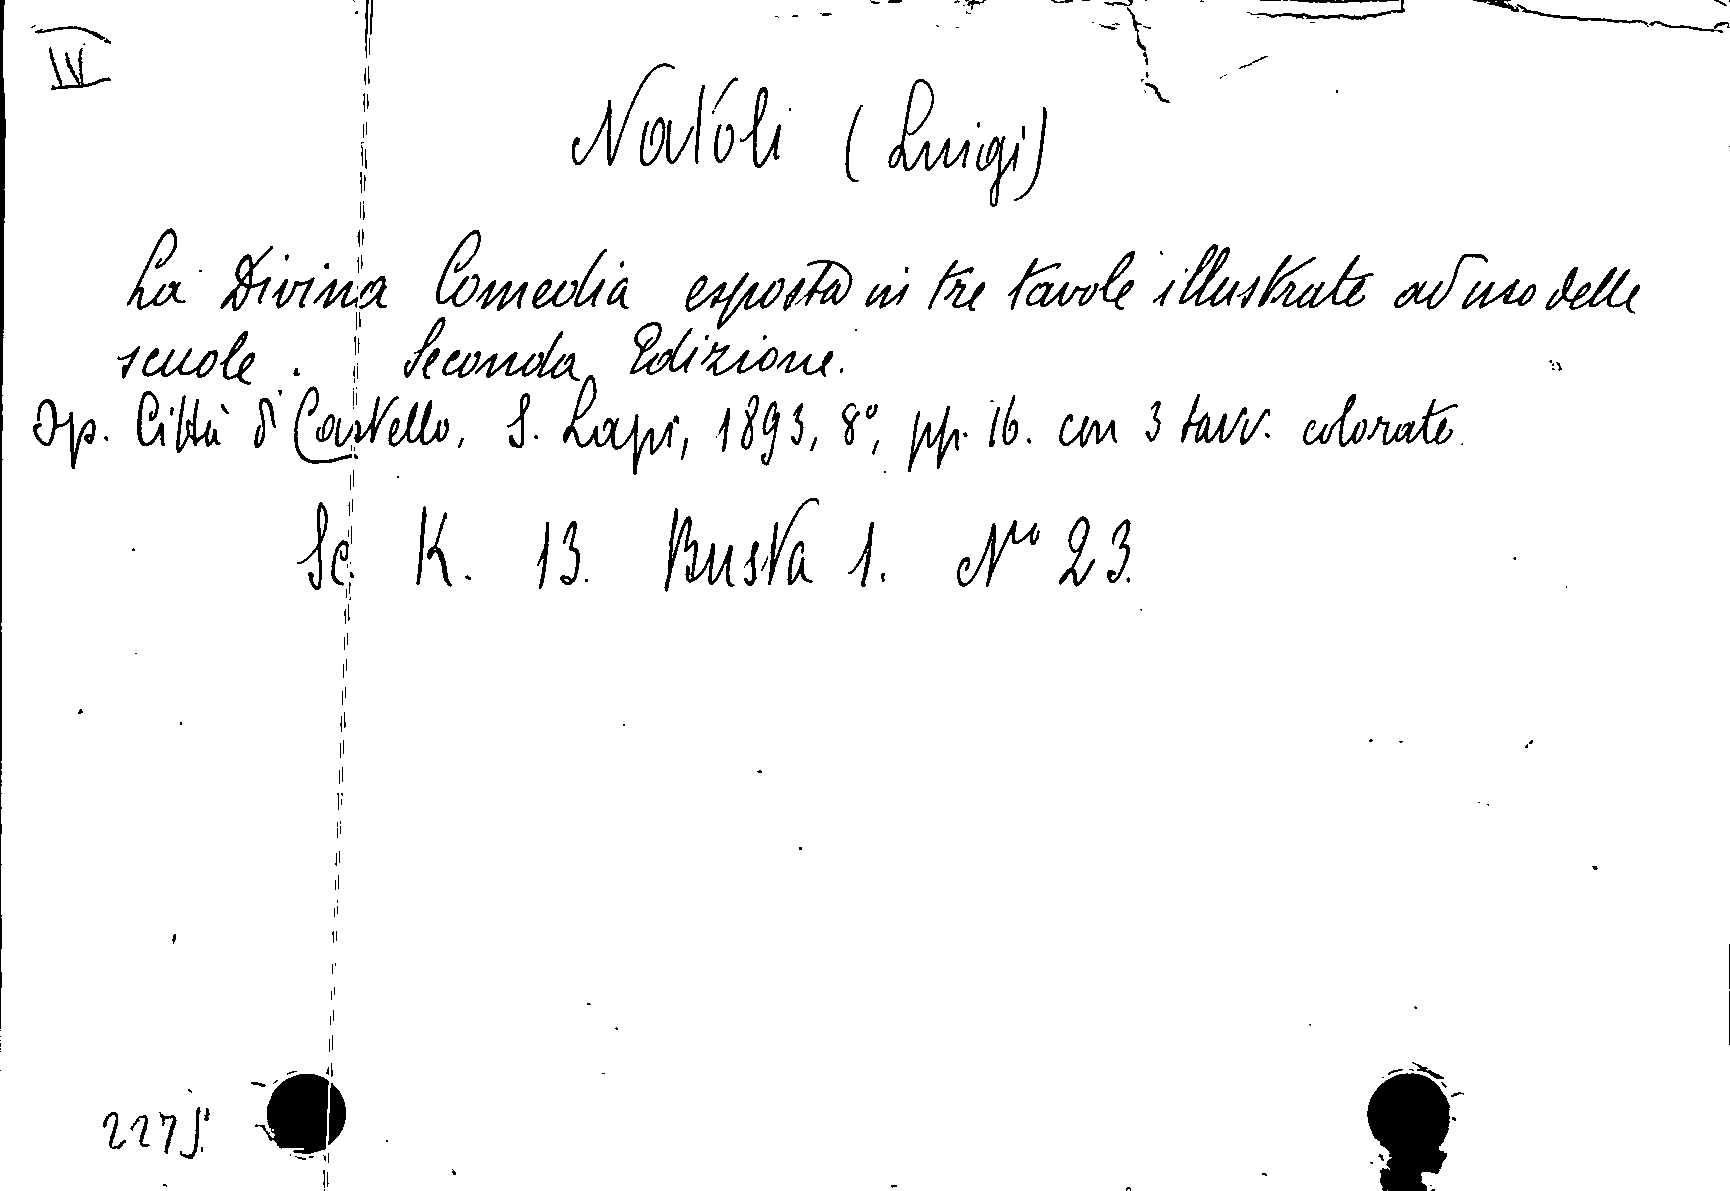 IV
Natoli (Luigi)
La Divina Comedia esposta in tre tavole illustrate ad uso delle
scuole. Seconda Edizione.
Op. Città di Castello, S. Lapi, 1893, 8°, pp. 16. con 3 tavv. colorate
Sc. K. 13. Busta 1. Nro 23.